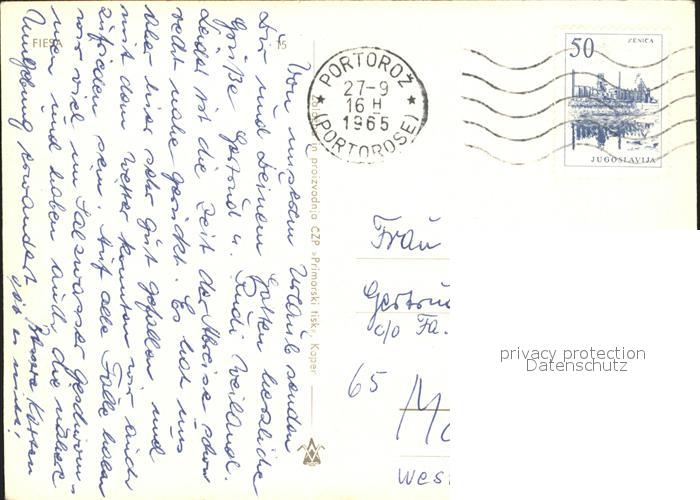 FIESA
15
Von unserem Urlaub senden
Dir und Deinem Gatten herzliche
Grüße Gertrud u. Rudi Weiland.
Leider ist die Zeit der Abreise schon
recht nahe gerückt. Es hat uns
aber hier sehr gut gefallen und
mit dem Wetter konnten wir auch
zufrieden sein. Auf alle Fälle haben
wir viel im Salzwasser geschwom-
men und haben auch die nähere
Umgebung erwandert. Bessere Karten
gab es nicht!
in proizvodnja CZP »Primorski tisk«, Koper
PORTOROŽ
27-9
16 H
1965
(PORTOROSE)
50
ZENICA
JUGOSLAVIJA
Frau
Gertrud
c/o Fa.
65
West
privacy protection
Datenschutz